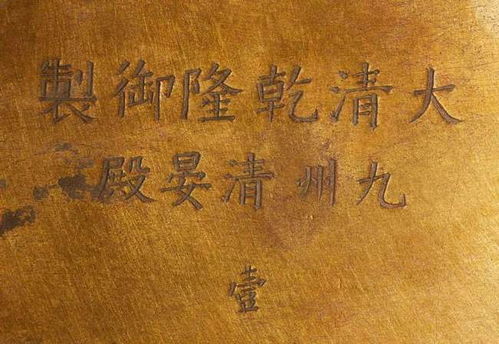 大清乾隆御製
九州清晏殿
壹